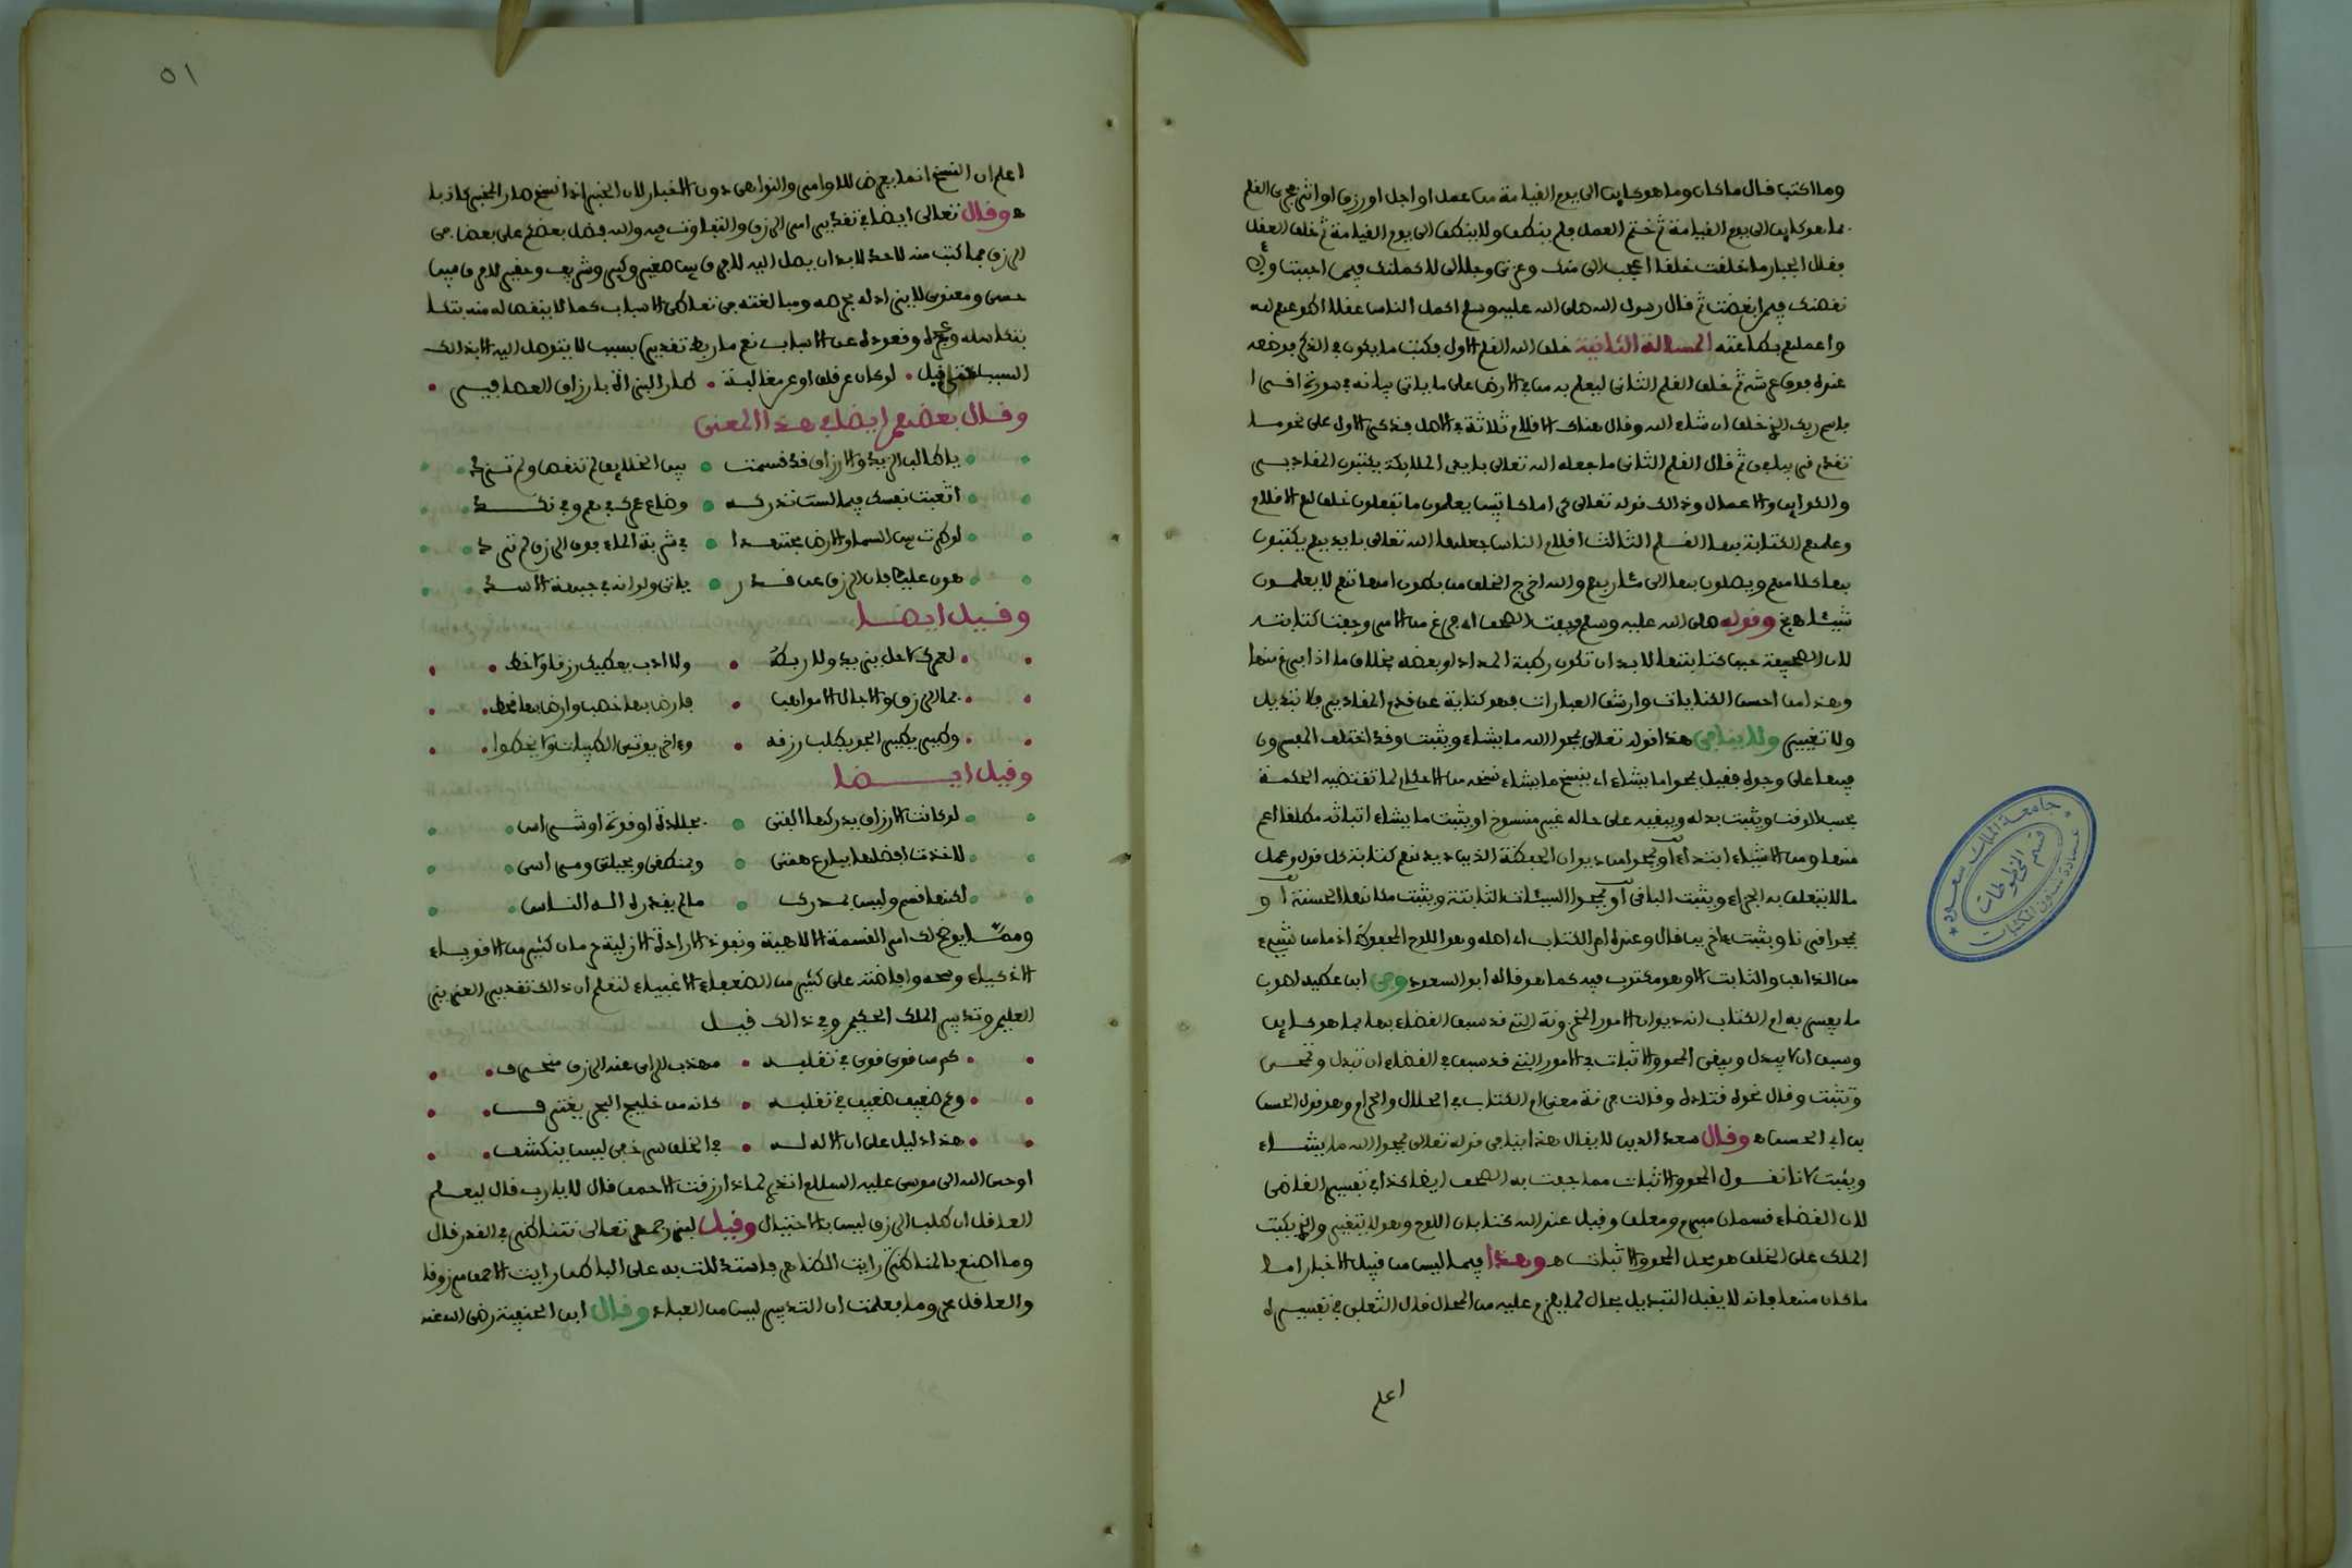 وما اكتب قال ما كان وما هو كاين الى يوم القيامة من عمل او اجل او رزق او اثر فجرى القلم
بما هو كاين الى يوم القيامة ثم ختم العمل فلم ينطق ولا ينطق الى يوم القيامة ثم خلق العقل
فقال الجبار ما خلقت خلقا اعجب الى منك وعزتى وجلالى لاكملنك فيمن احببت و
نقصنك فيمن ابغضت ثم قال رسول الله صلى الله عليه وسلم اكمل الناس عقلا اطوعهم لله
واعملهم بطاعته المسالة الثانية خلق الله القلم الاول فكتب ما يكون في الذكر ووضعه
عنده فوق عرشه ثم خلق القلم الثانى ليعلم به من في الارض على ما ياتى بيانه في سورة اقرا
باسم ربك الذي خلق ان شاء الله وقال هناك الاقلام ثلاثة في الاصل فذكر الاول على نحو ما
تقدم ثم قال القلم الثانى ما جعله الله تعالى بايدى الملايكة يكتبون المقادير
والكواين والاعمال وذالك قوله تعالى كراما كاتبين يعلمون ما تفعلون خلق لهم الاقلام
وعلمهم الكتابة بها القلم الثالث اقلام الناس جعلها الله تعالى بايديهم يكتبون
بها كلامهم ويصلون بها الى مئاربهم والله اخرج الخلق من بطون امهاتهم لا يعلمون
شيئا وقوله صلى الله عليه وسلم وجفت الصحف اى فرغ من الامر وجفت كتابته
لان الصحيفة حين كتابتها لا بد ان تكون رطبة المداد او بعضه بخلاف ما اذا فرغ منها
وهذا من احسن الكنايات وارشق العبارات فهو كناية عن قدم المقادير فلا تبديل
ولا تغيير ولا ينافى هذا قوله تعالى يمحوا الله ما يشاء ويثبت وقد اختلف المفسرون
فيها على وجوه فقيل يمحوا ما يشاء اى ينسخ ما يشاء نسخه من الاحكام لما تقتضيه الحكمة
بحسب الوقت ويثبت بدله ويبقيه على حاله غير منسوخ او يثبت ما يشاء اثباته مطلقا اعم
منها ومن الاشياء ابتداء او يمحوا من ديوان الحفظة الذين ديدنهم كتابة كل قول وعمل
ما لا يتعلق به الجزاء ويثبت الباقى او يمحوا السيئات الثابتة ويثبت مكانها الحسنة او
يمحوا قرنا ويثبت ءاخرين قال وعنده ام الكتاب اى اصله وهو اللوح المحفوظ اذ ما من شيء
من الذاهب والثابت الا وهو مكتوب فيه كما هو قاله ابو السعود وعن ابن عطية اصوب
ما يفسر به ام الكتاب انه ديوان الامور المخزونة التي قد سبق القضاء بها بما هو كاين
وسبق ان لا يبدل ويبقى المحو والاثبات في الامور التي قد سبق في القضاء ان تبدل وتمحى
وتثبت وقال نحوه قتادة وقالت فرقة معنى ام الكتاب في الحلال والحرام وهو قول الحسن
بن ابى الحسن وقال سعد الدين لا يقال هذا ينافى قوله تعالى يمحوا الله ما يشاء
ويثبت لانا نقول المحو والاثبات مما جفت به الصحف ايضا كذا في تفسير القاضى
لان القضاء قسمان مبرم ومعلق وقيل عند الله كتابان اللوح وهو لا يتغير والذي يكتبه
الملك على الخلق هو محل المحو والاثبات وهذا فيما ليس من قبيل الاخبار اما
ما كان منها فانه لا يقبل التبديل بحال لما يلزم عليه من المحال قال الثعلبى في تفسيره
اعلم
٥١
اعلم ان النسخ انما يعرض للاوامر والنواهى دون الاخبار لان الخبر اذا نسخ صار المخبر كاذبا
وقال تعالى ايضا في تقدير امر الرزق والتفاوت فيه والله فضل بعضكم على بعض في
الرزق فما كتب منه لاحد لا بد ان يصل اليه لا فرق بين صغير وكبير وشريف وحقير لا فرق فيه بين
حسى ومعنوى لا يزاد له بحرصه ومبالغته في تعاطى الاسباب كما لا ينقص له منه
بتكاسله وعجزه وقعوده عن الاسباب نعم ما ربط تقديره بسبب لا يتوصل اليه الا بذالك
السبب قيل • لو كان عن قلق او عن مغالبة • طار البزاة بارزاق العصافير •
وقال بعضهم ايضا في هذا المعنى
يا طالب الرزق والارزاق قد قسمت • بين الخلايق لم تنقص ولم تزد
اتعبت نفسك فيما لست تدركه • وضاع عمرك في هم وفي نكد
لو طرت بين السما والارض مجتهدا • في شربة الماء فوق الرزق لم تزد
هون عليك فان الرزق عن قدر • ياتى ولو انه في جبهة الاسد
وقيل ايضا
لعمرك ما كل يزيد ولا ربطة • ولا ادب يعطيك رزقا ولا خط •
فما الرزق والاجال الا مواهب • فارض بها خصب وارض بها قحط •
وطير يطير الجو يطلب رزقه • وءاخر يوتى الطيبات ولا يخطوا •
وقيل ايضا
لو كانت الارزاق يدركها الفتى • بجلادة او قوة او شد باس
لاخذت افضلها ببارع همتى • وبمنطقى وبحيلتى ومراسى
لكنها قسم وليس بمدرك • ما لم يقدره اله الناس
ومما يوضح لك امر القسمة الالاهية ونفوذ الارادة الازلية حرمان كثير من الاقوياء
الاذكياء وسحه وافاضته على كثير من الضعفاء الاغبياء لتعلم ان ذالك تقدير العزيز
العليم وتدبير الملك الحكيم وفي ذالك قيل
كم من قوى قوى في تقلبه • مهذب الراى عنه الرزق منحرف •
وكم ضعيف ضعيف في تقلبه • كانه من خليج البحر يغترف •
هذا دليل على ان الاله له • في الخلق سر خفى ليس ينكشف •
اوحى الله الى موسى عليه السلام اتدرى لماذا رزقت الاحمق قال لا يا رب قال ليعلم
العاقل ان طلب الرزق ليس بالاحتيال وقيل لبزرجمهر تعالى نتناظر في القدر قال
وما اصنع بالمناظرة رايت الظاهر فاستدللت به على الباطن رايت الاحمق مرزوقا
والعاقل محروما فعلمت ان التدبير ليس من العباد وقال ابن الحنفية رضى الله عنه
جامعة الملك سعود
قسم المخطوطات
عمادة شئون المكتبات